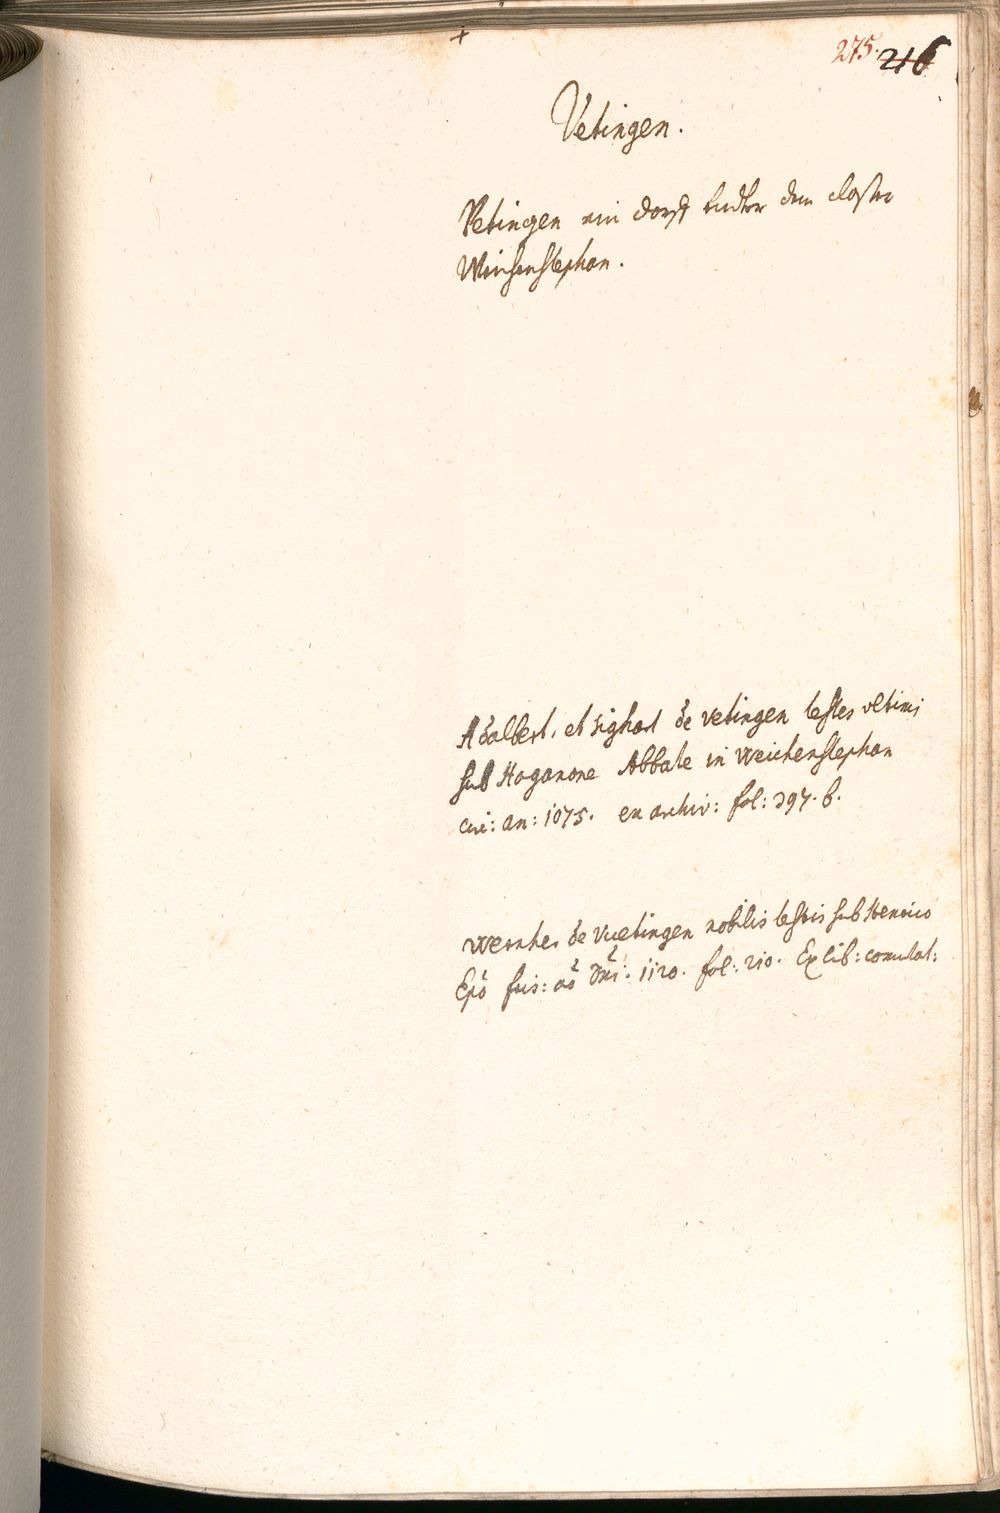 275. 216
Vetingen.
Vetingen ein dorff hindter dem closter
Weichenstephan.
Adalbert, et Sighart de Vetingen testes ultimi
sub Haganone Abbate in Weichenstephan
circ: an: 1075. ex archiv: fol: 297. b.
Wernher de Vuetingen nobilis testis sub Henrico
Epõ fris: aõ Dñi. 1120. fol: 210. Ex lib: comutat: